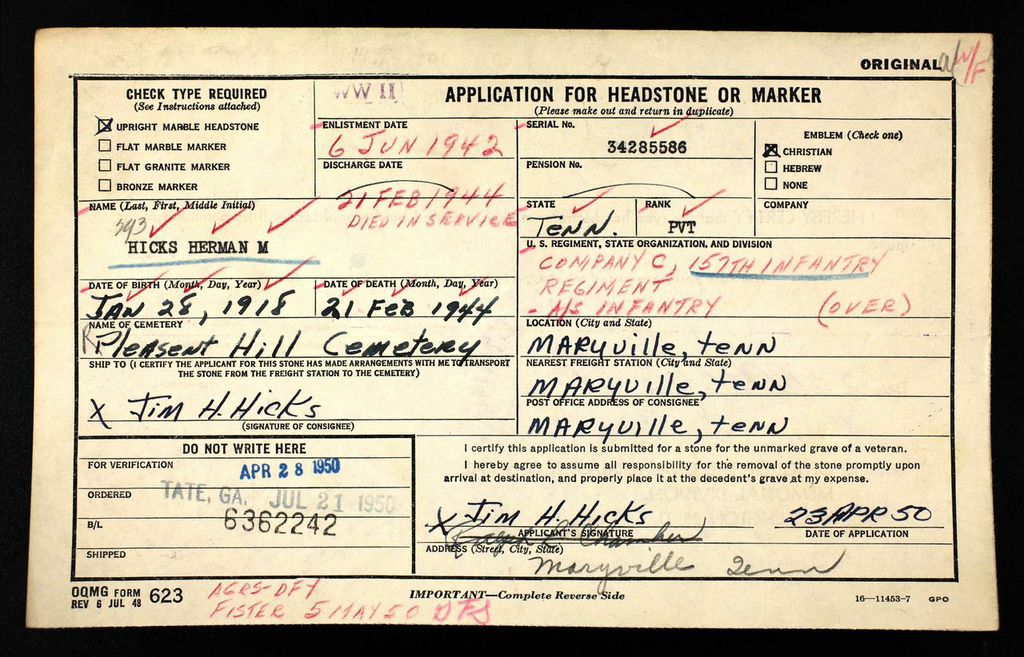 ORIGINAL
CHECK TYPE REQUIRED
(See Instructions attached)
UPRIGHT MARBLE HEADSTONE
FLAT MARBLE MARKER
FLAT GRANITE MARKER
BRONZE MARKER
WW II
APPLICATION FOR HEADSTONE OR MARKER
(Please make out and return in duplicate)
ENLISTMENT DATE
6 JUN 1942
DISCHARGE DATE
21 FEB 1944
DIED IN SERVICE
SERIAL No.
34285586
PENSION No.
EMBLEM (Check one)
CHRISTIAN
HEBREW
NONE
STATE
TENN.
RANK
PVT
COMPANY
NAME (Last, First, Middle Initial)
HICKS HERMAN M
U. S. REGIMENT, STATE ORGANIZATION, AND DIVISION
COMPANY C, 157TH INFANTRY
REGIMENT
- A/S INFANTRY (OVER)
DATE OF BIRTH (Month, Day, Year)
JAN 28, 1918
DATE OF DEATH (Month, Day, Year)
21 FEB 1944
NAME OF CEMETERY
Pleasent Hill Cemetery
LOCATION (City and State)
MARYVille, tENN
SHIP TO (I CERTIFY THE APPLICANT FOR THIS STONE HAS MADE ARRANGEMENTS WITH ME TO TRANSPORT
THE STONE FROM THE FREIGHT STATION TO THE CEMETERY)
X Jim H. Hicks
(SIGNATURE OF CONSIGNEE)
NEAREST FREIGHT STATION (City and State)
MARYville, tENN
POST OFFICE ADDRESS OF CONSIGNEE
MARYville, tENN
DO NOT WRITE HERE
FOR VERIFICATION
APR 28 1950
ORDERED
TATE, GA. JUL 21 1950
B/L
6362242
SHIPPED
I certify this application is submitted for a stone for the unmarked grave of a veteran.
I hereby agree to assume all responsibility for the removal of the stone promptly upon
arrival at destination, and properly place it at the decedent's grave at my expense.
X Jim H. Hicks
23 APR 50
APPLICANT'S SIGNATURE
DATE OF APPLICATION
ADDRESS (Street, City, State)
Maryville Tenn
OQMG FORM 623
REV 6 JUL 48
AGRS-DFY
FISTER 5 MAY 50
IMPORTANT—Complete Reverse Side
16—11453-7 GPO